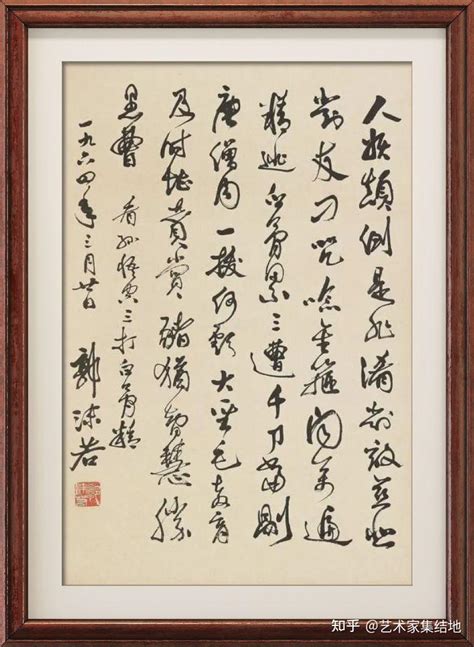 人妖顛倒是非淆對敵慈悲
對友刁咒唸金箍聞萬遍
精逃白骨累三遭千刀當剮
唐僧肉一拔何虧大聖毛教育
及時堪贊賞豬猶智慧勝
愚曹 看孫悟空三打白骨精
一九六四年三月廿日 郭沫若
知乎 @艺术家集结地